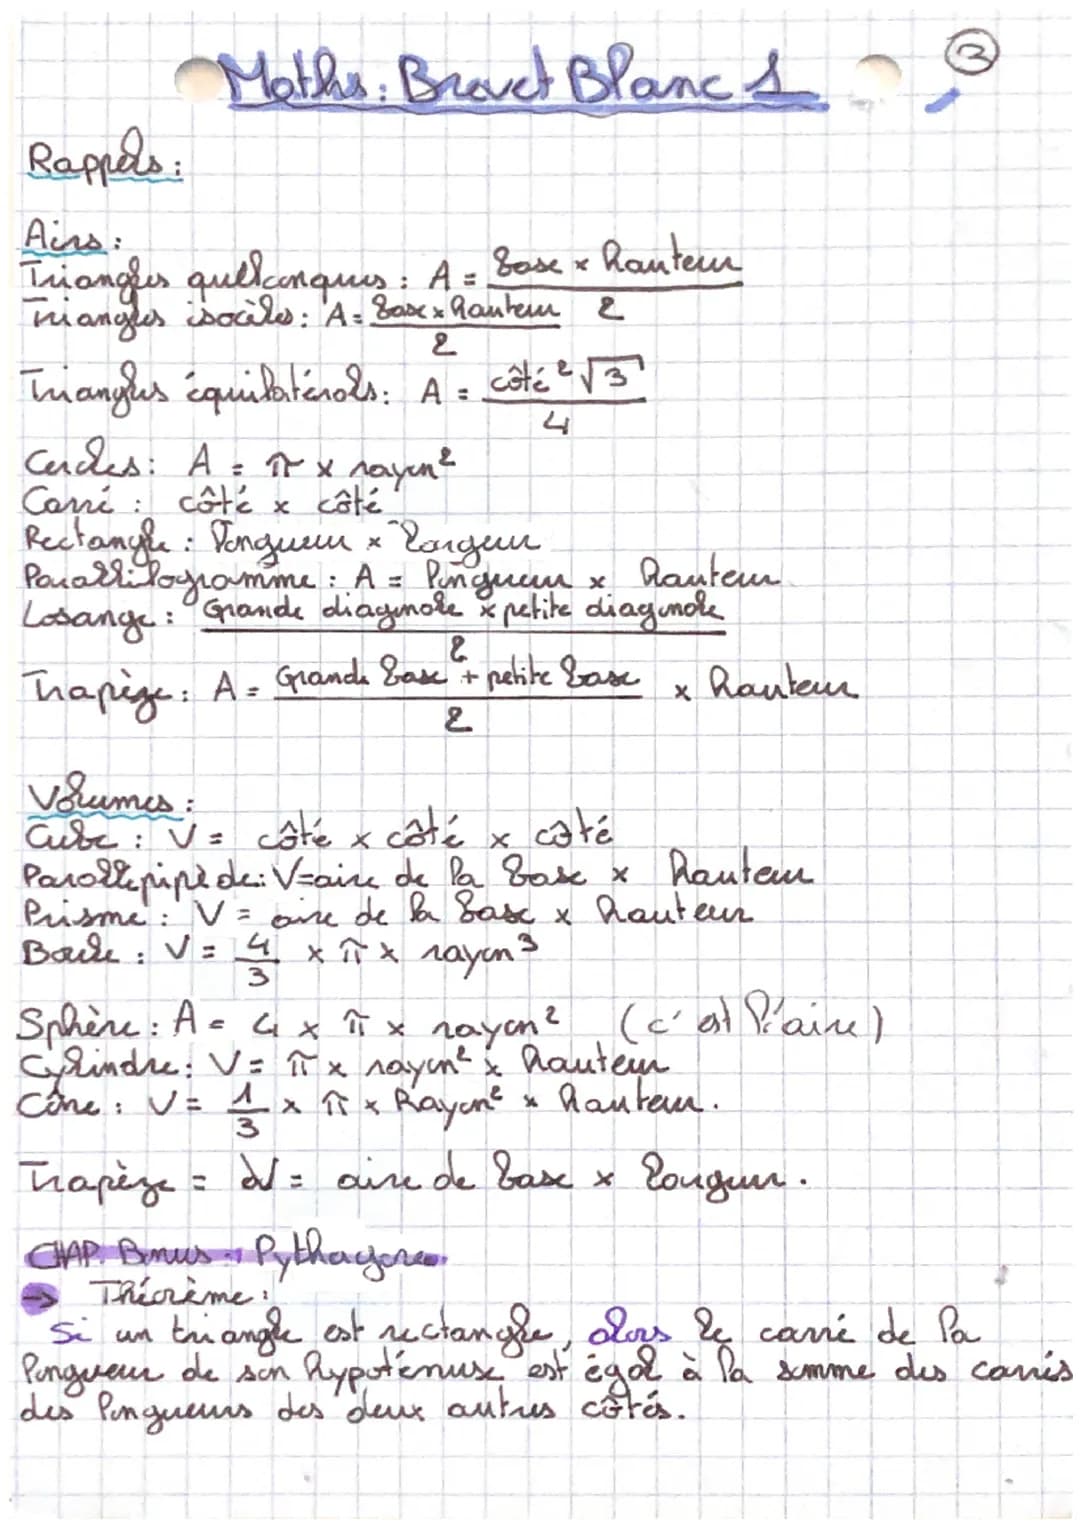 Maths : Brevet Blanc 1
3
Rappels :
Aires :
Triangles quelconques : A = base x hauteur / 2
Triangles isocèles : A = base x hauteur / 2
Triangles équilatérals : A = côté² √3 / 4
Cercles : A = π x rayon²
Carré : côté x côté
Rectangle : longueur x largeur
Parallélogramme : A = longueur x hauteur
Losange : Grande diagonale x petite diagonale / 2
Trapèze : A = Grande base + petite base / 2 x hauteur
Volumes :
Cube : V = côté x côté x côté
Parallépipède : V = aire de la base x hauteur
Prisme : V = aire de la base x hauteur
Boule : V = 4/3 x π x rayon³
Sphère : A = 4 x π x rayon² (c'est l'aire)
Cylindre : V = π x rayon² x hauteur
Cône : V = 1/3 x π x Rayon² x hauteur.
Trapèze = V = aire de base x longueur.
CHAP. Bonus : Pythagore
→ Théorème :
Si un triangle est rectangle, alors le carré de la
longueur de son hypoténuse est égal à la somme des carrés
des longueurs des deux autres côtés.